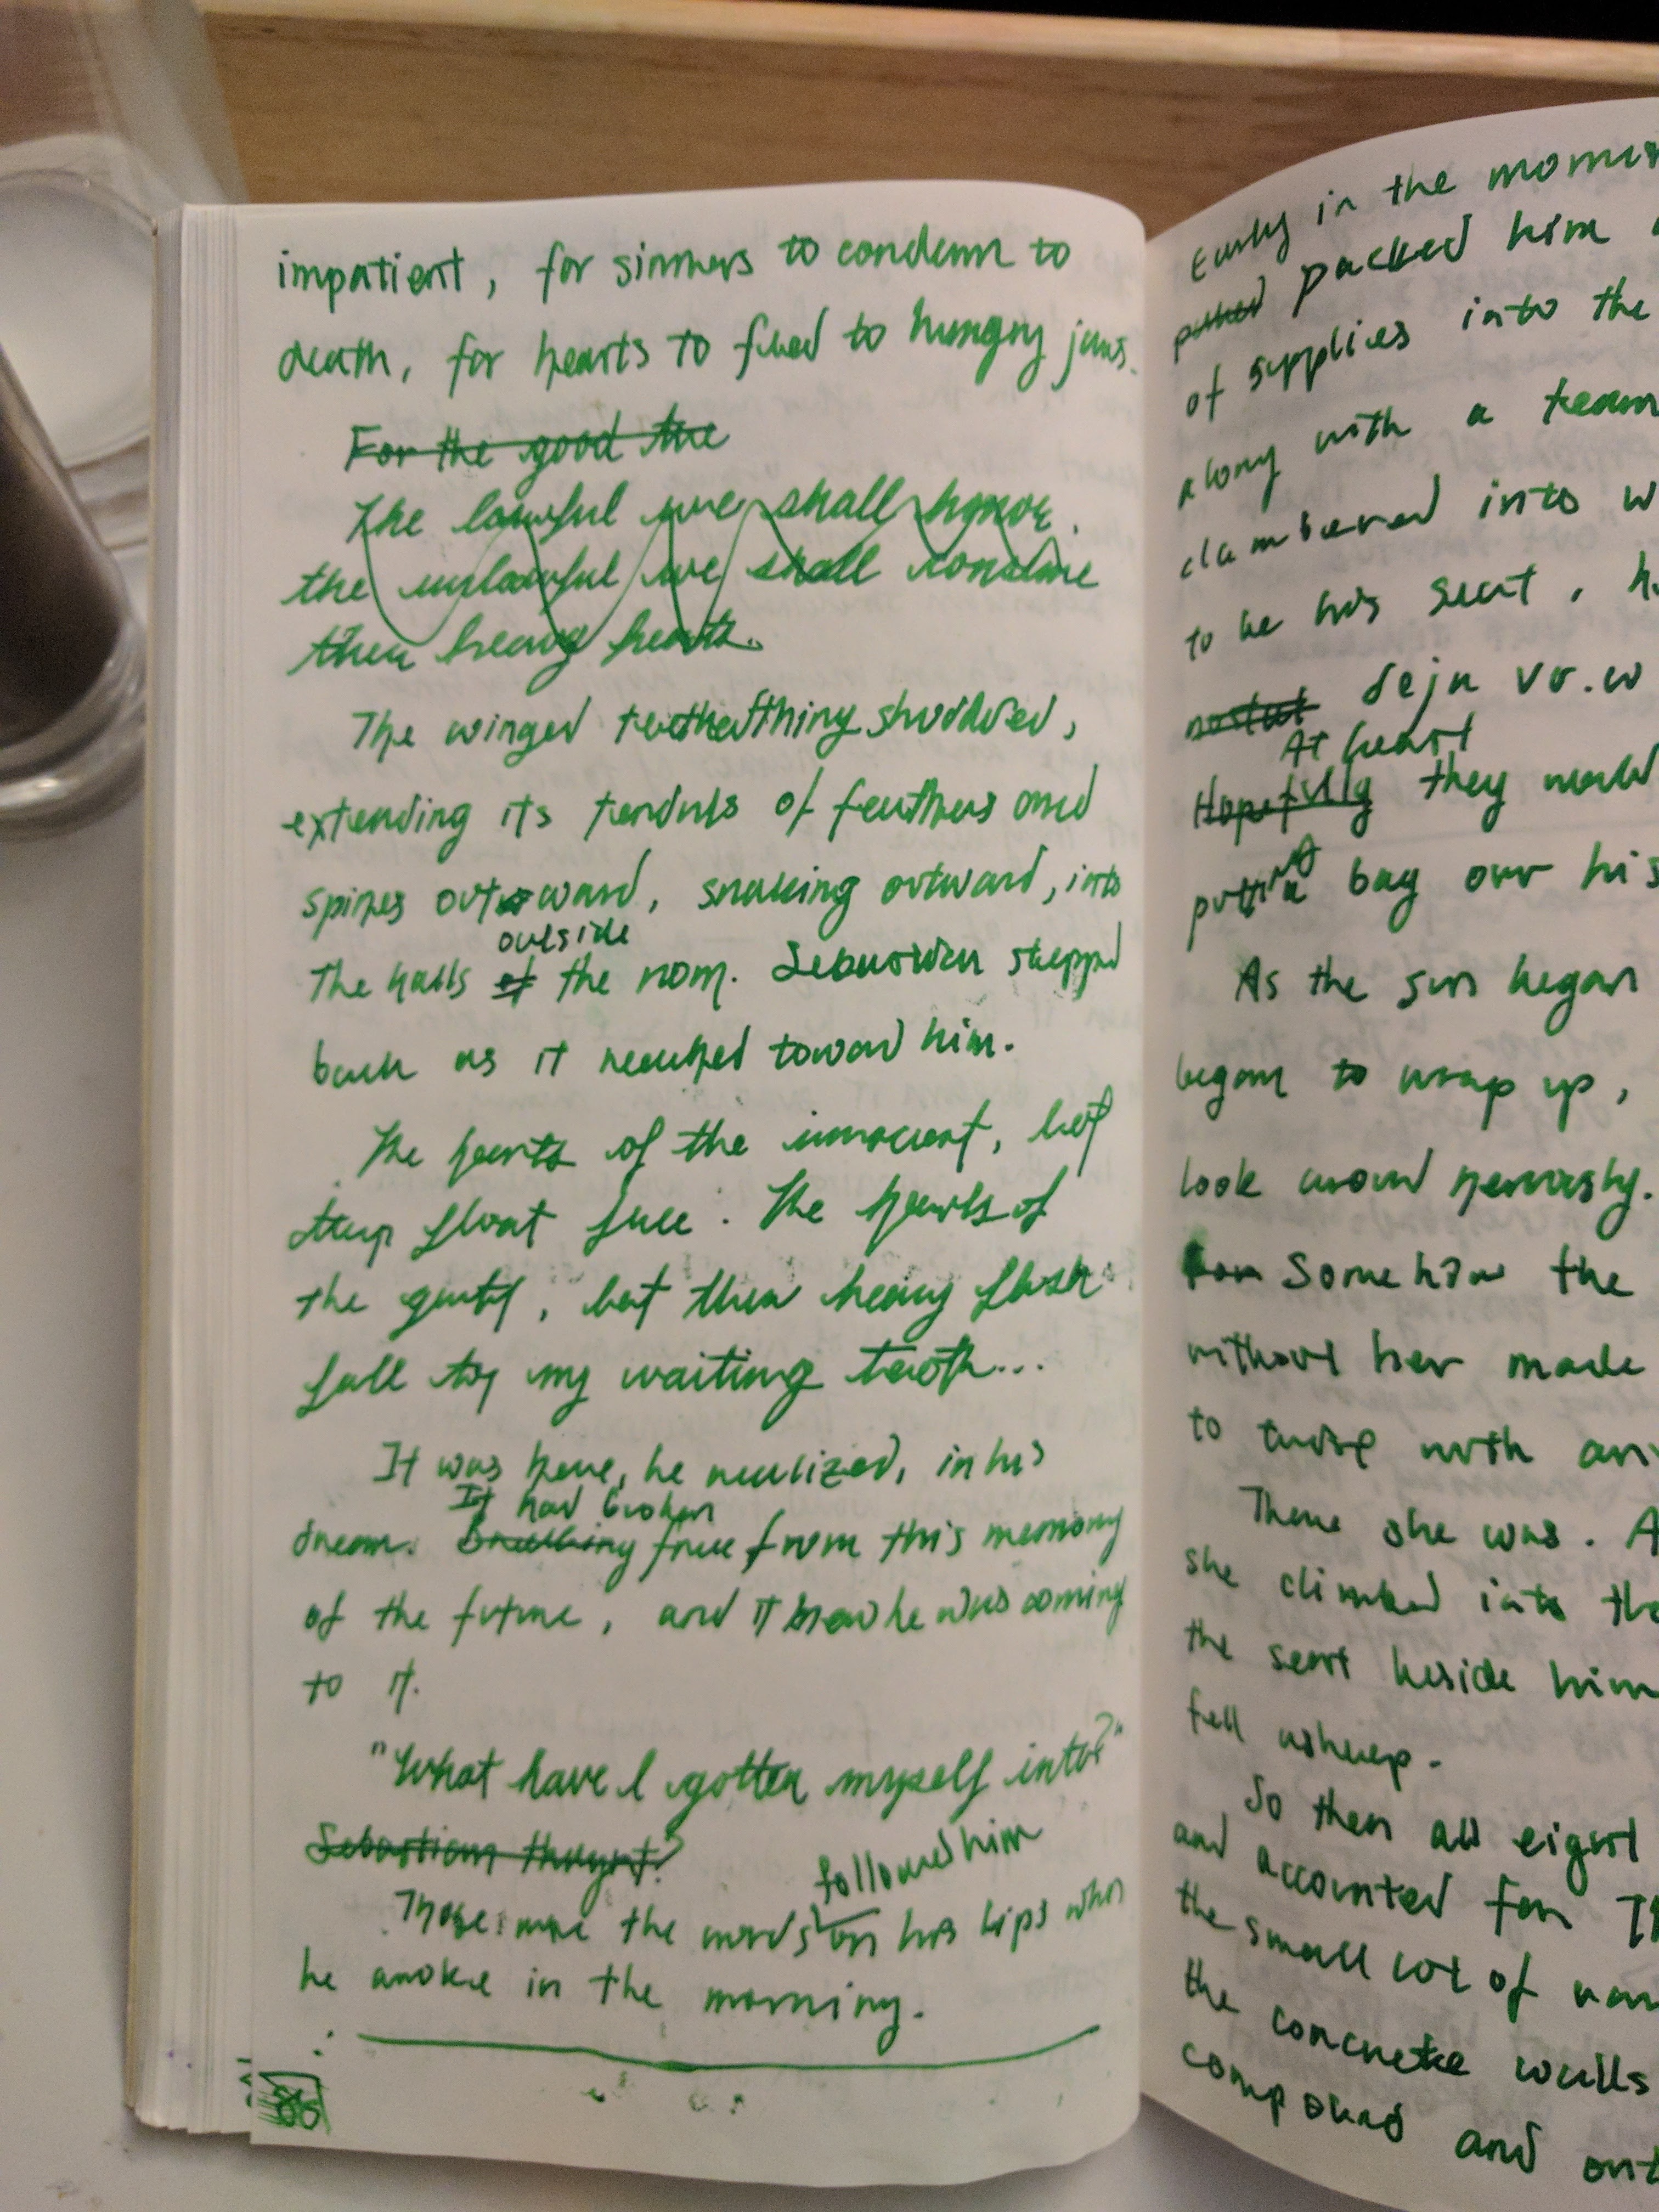 impatient, for sinners to condemn to
death, for hearts to feed to hungry jaws.
For the good the
The lawful we shall honor.
the unlawful we shall consume
their heavy hearts.
The winged thing shuddered,
extending its tendrils of feathers and
spines outward, snaking outward, into
outside
the halls of the room. Sebastian stepped
back as it reached toward him.
The hearts of the innocent, let
them float free. The hearts of
the guilty, let their heavy flesh
fall to my waiting teeth...
It was here, he realized, in his
It had broken
dream. Breaking free from this memory
of the future, and it knew he was coming
to it.
"What have I gotten myself into?"
Sebastian thought?
followed him
These were the words on his lips when
he awoke in the morning.
86
Early in the
packed him
of supplies into the
along with a team
clambered into
to be his seat,
deja vu.
At heart
Hopefully they would
putting bag over his
As the sun began
began to wrap up,
look around nervously.
Somehow the
without her made
to with
There she was. A
she climbed into
the seat beside him
fell asleep.
So then all eight
and accounted for
the small lot of
the concrete walls
compound and